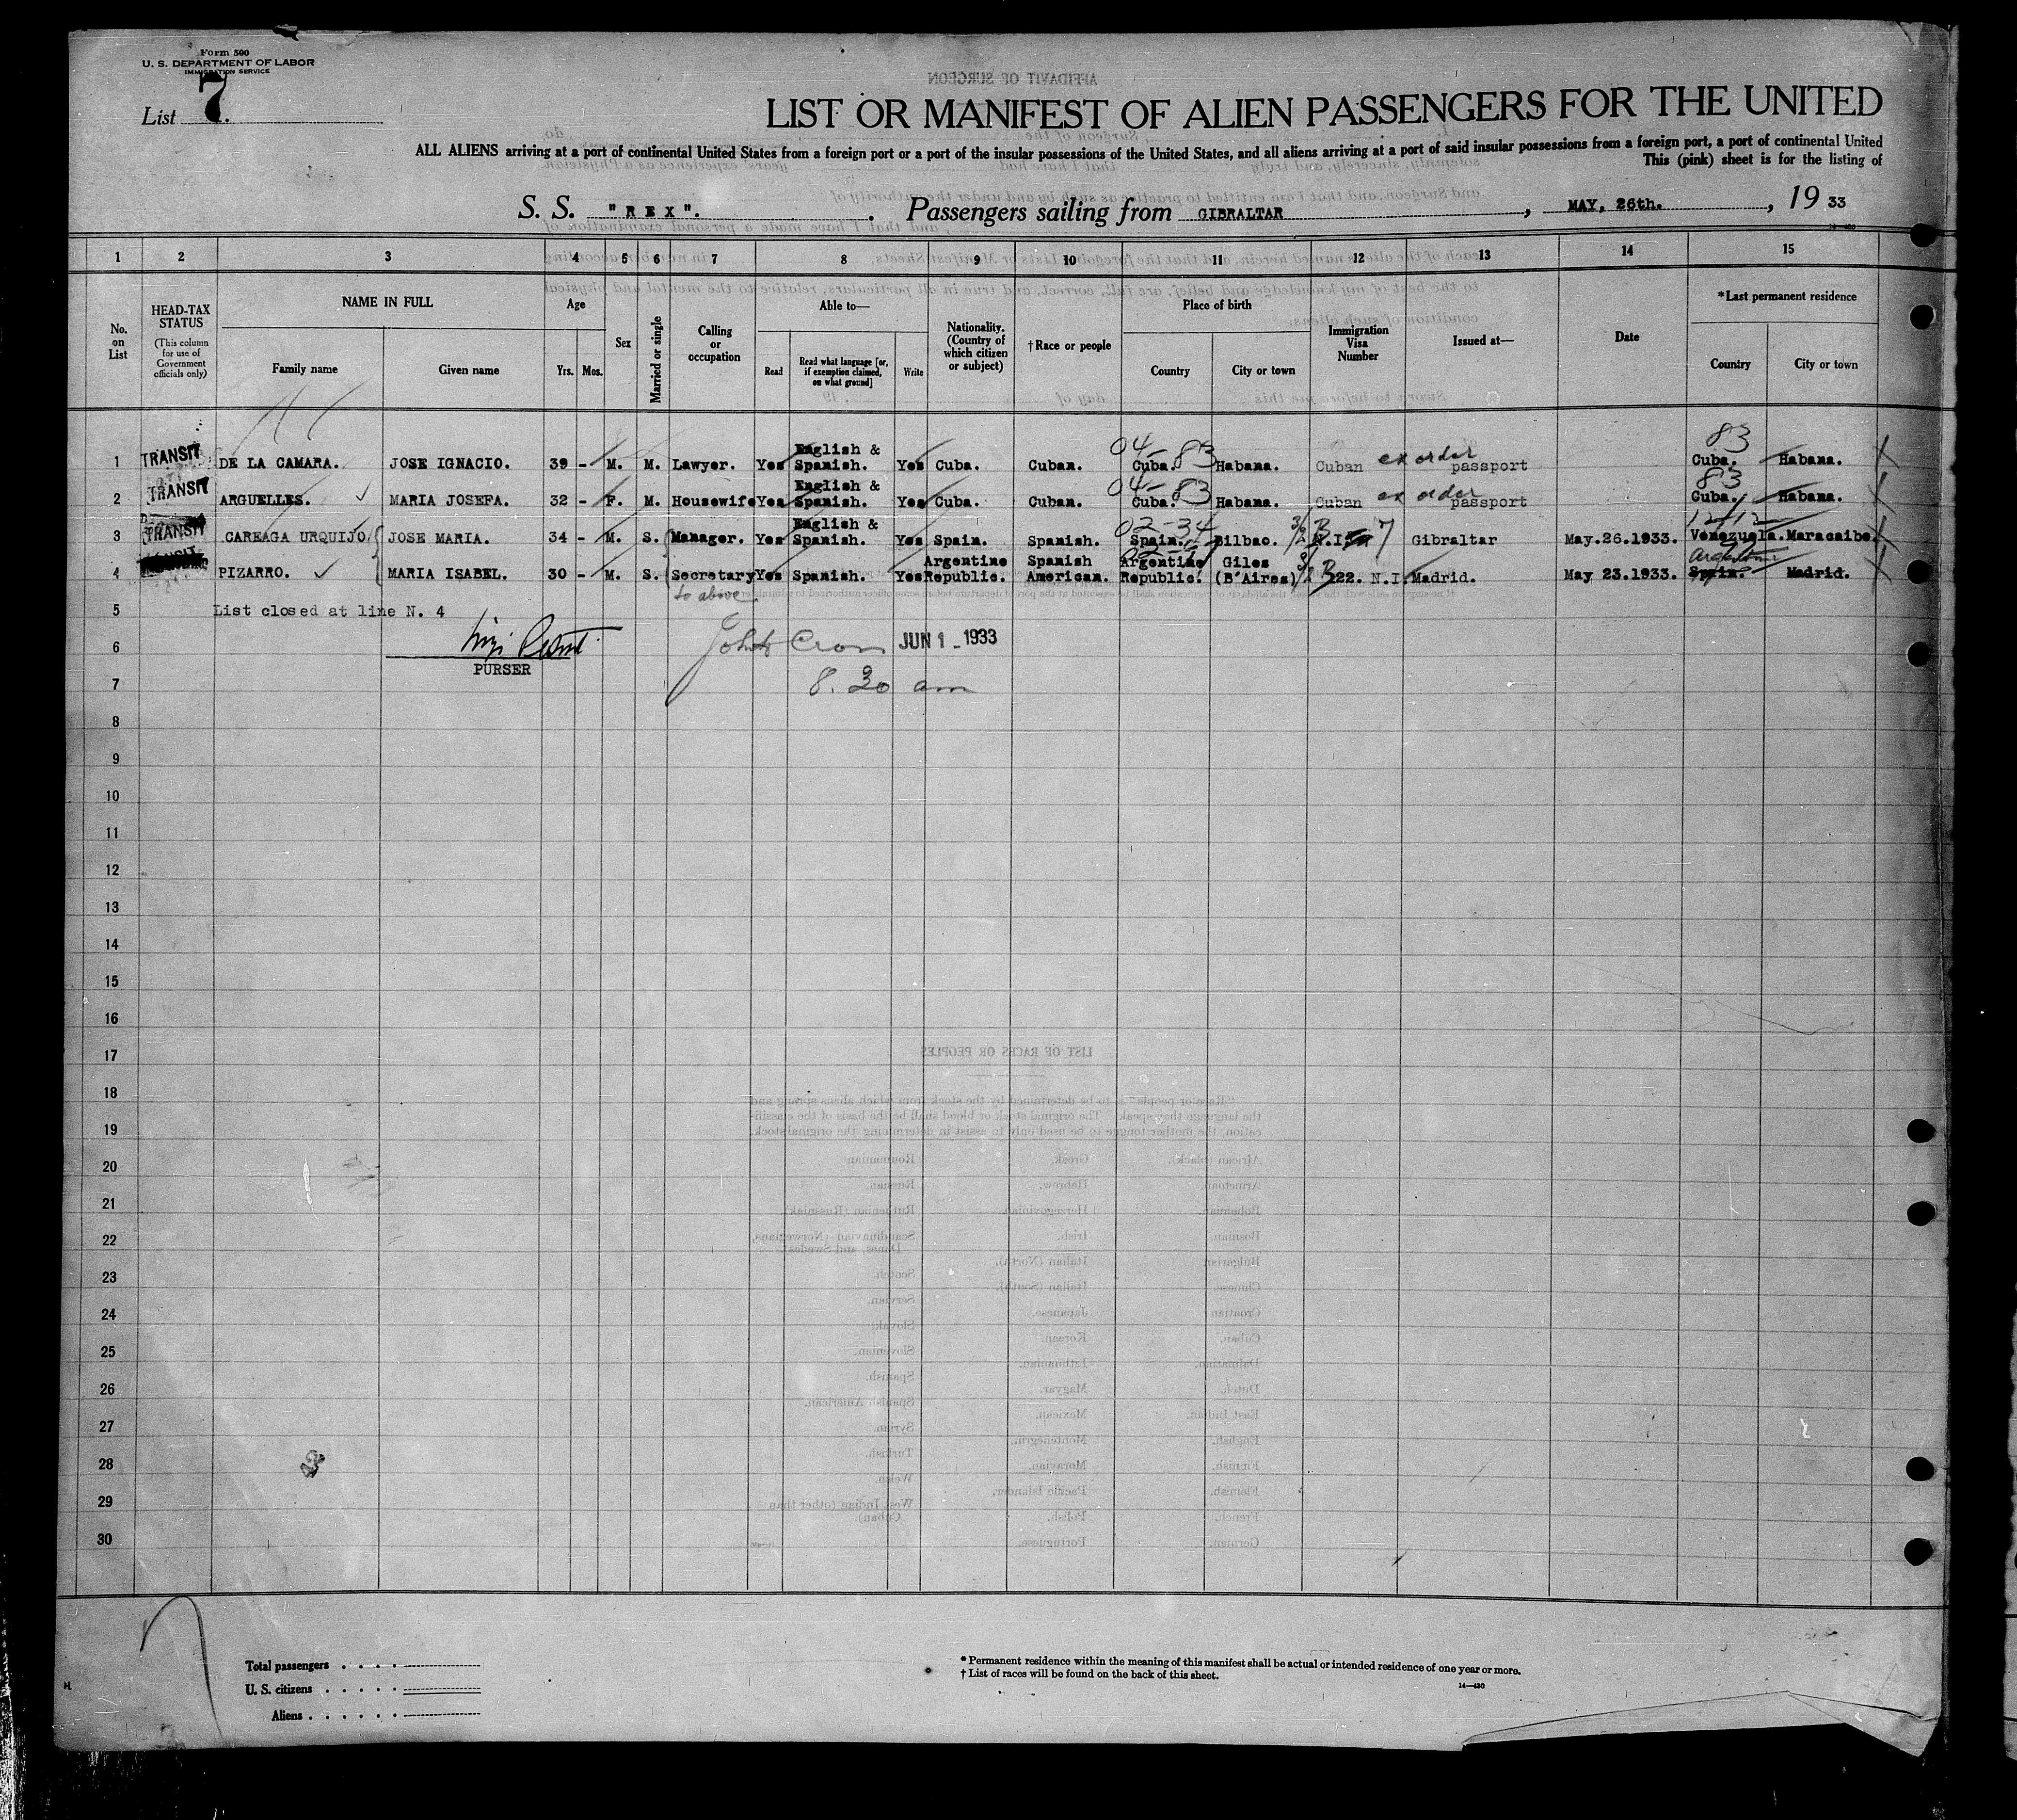 Form 500
U. S. DEPARTMENT OF LABOR
IMMIGRATION SERVICE
List 7.
LIST OR MANIFEST OF ALIEN PASSENGERS FOR THE UNITED
ALL ALIENS arriving at a port of continental United States from a foreign port or a port of the insular possessions of the United States, and all aliens arriving at a port of said insular possessions from a foreign port, a port of continental United
This (pink) sheet is for the listing of
S. S. "REX". Passengers sailing from GIBRALTAR, MAY, 26th., 19 33
1 2 3 4 5 6 7 8 9 10 11 12 13 14 15
No. on List
HEAD-TAX STATUS
(This column for use of Government officials only)
NAME IN FULL
Family name Given name
Age
Yrs. Mos.
Sex
Married or single
Calling or occupation
Able to—
Read Read what language [or, if exemption claimed, on what ground] Write
Nationality. (Country of which citizen or subject)
†Race or people
Place of birth
Country City or town
Immigration Visa Number
Issued at—
Date
*Last permanent residence
Country City or town
1 TRANSIT DE LA CAMARA. JOSE IGNACIO. 39 - M. M. Lawyer. Yes English & Spanish. Yes Cuba. Cuban. 04-83 Cuba. Habana. Cuban ex order passport 83 Cuba. Habana.
2 TRANSIT ARGUELLES. MARIA JOSEFA. 32 - F. M. Housewife Yes English & Spanish. Yes Cuba. Cuban. 04-83 Cuba. Habana. Cuban ex order passport 83 Cuba. Habana.
3 TRANSIT CAREAGA URQUIJO JOSE MARIA. 34 - M. S. Manager. Yes English & Spanish. Yes Spain. Spanish. 02-34 Spain. Bilbao. N.I. 7 Gibraltar May.26.1933. Venezuela. Maracaibo.
4 PIZARRO. MARIA ISABEL. 30 - M. S. Secretary to above Yes Spanish. Yes Argentine Republic. Spanish American. Argentine Republic. Giles (B'Aires) 122. N.I. Madrid. May 23.1933. Argentine Spain. Madrid.
5 List closed at line N. 4
6 JUN 1 - 1933
PURSER
7 8.30 am
8
9
10
11
12
13
14
15
16
17
18
19
20
21
22
23
24
25
26
27
28
29
30
Total passengers
U. S. citizens
Aliens
* Permanent residence within the meaning of this manifest shall be actual or intended residence of one year or more.
† List of races will be found on the back of this sheet.
14—430